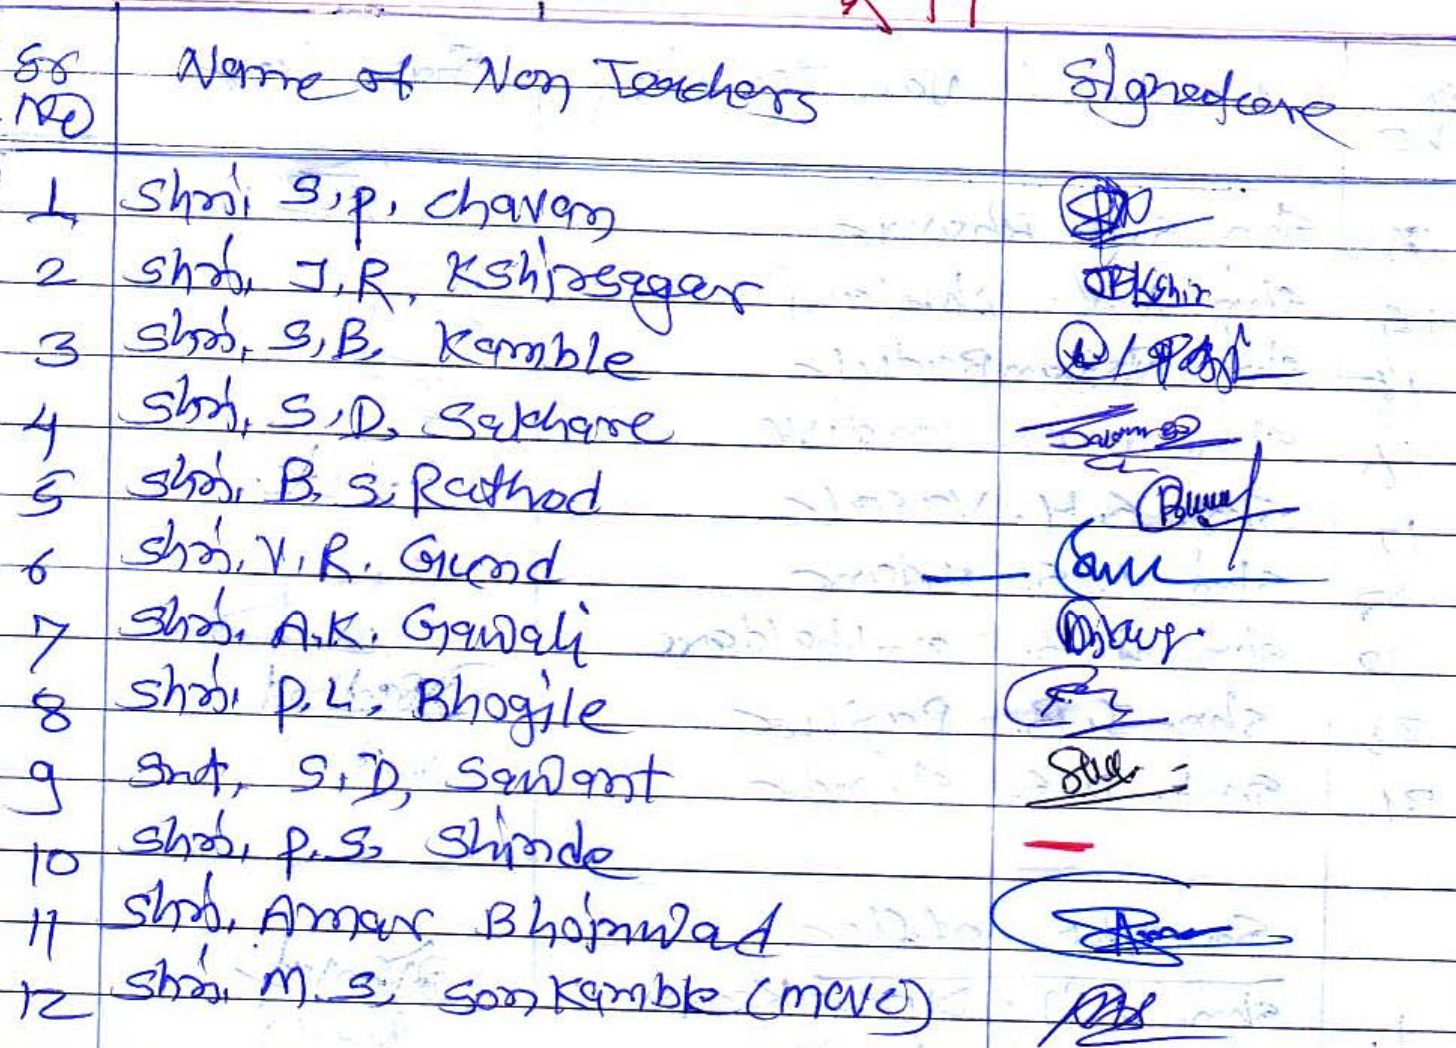 Sr No Name of Non Teachers Signedcare
1 Shri, S.P. Chavan
2 Shri, J.R. Kshirsagar JRKshir
3 Shri, S.B. Kamble
4 Shri, S.D. Sakhare
5 Shri, B.S. Rathod
6 Shri, V.R. Gund
7 Shri, A.K. Gawali
8 Shri, P.L. Bhogile
9 Smt, S.D. Sawant
10 Shri, P.S. Shinde —
11 Shri, Amar Bhoinwad
12 Shri, M.S. Sonkamble (MCVC)